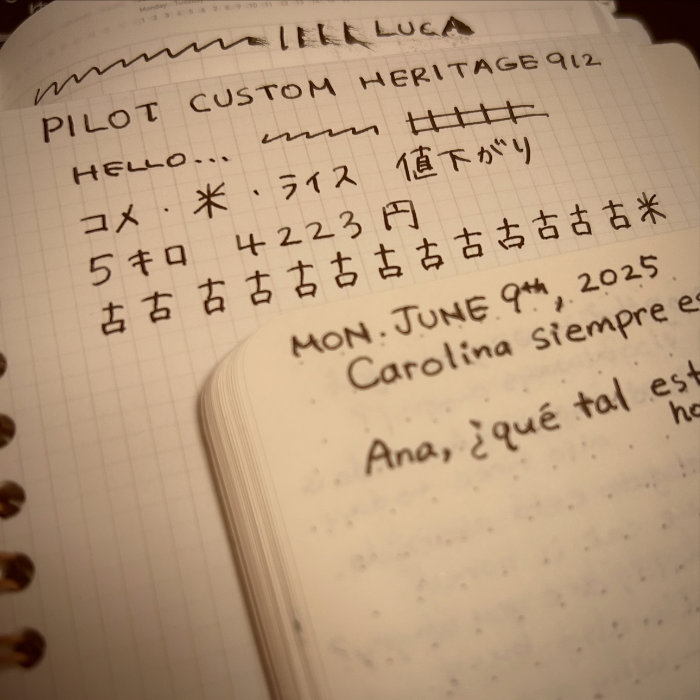 LUCA
PILOT CUSTOM HERITAGE 912
HELLO...
コメ・米・ライス 値下がり
5キロ 4223円
古古古古古古古古古古古古古米
MON. JUNE 9th, 2025
Carolina siempre es
Ana, ¿qué tal est